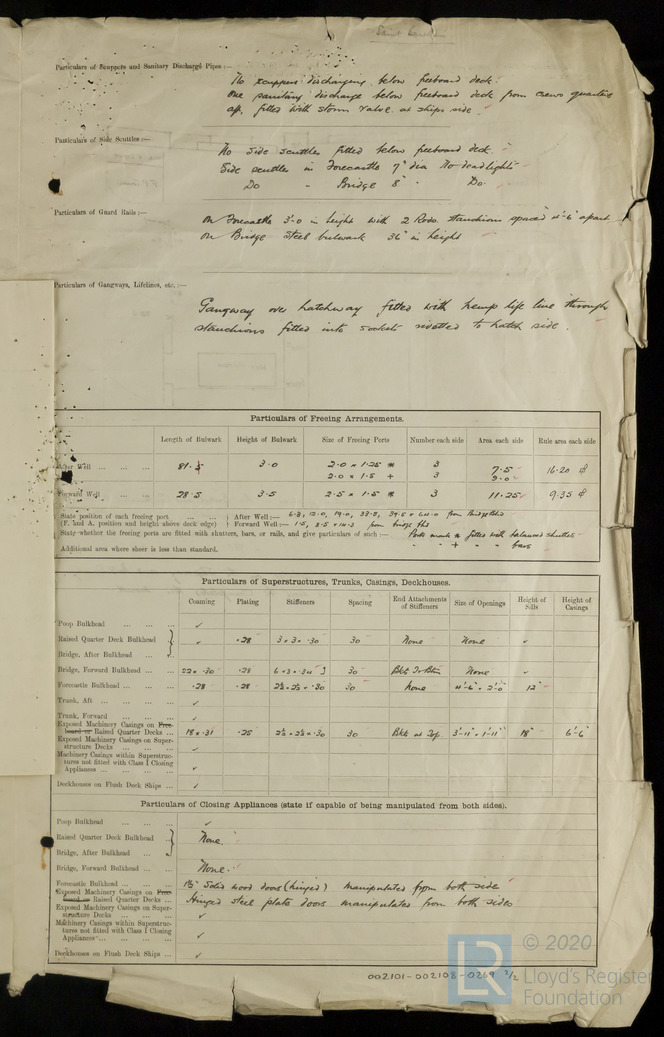 Particulars of Scuppers and Sanitary Discharge Pipes :—
No scuppers discharging below freeboard deck.
One sanitary discharge below freeboard deck from crews quarters
aft, fitted with storm valve at ships side
Particulars of Side Scuttles :—
No side scuttles fitted below freeboard deck
Side scuttles in Forecastle 7" dia No deadlights
Do " Bridge 8" " Do
Particulars of Guard Rails :—
On Forecastle 3'-0 in height with 2 Rods. Stanchions spaced 4'-6" apart
on Bridge steel bulwark 36" in height
Particulars of Gangways, Lifelines, etc. :—
Gangway over hatchway fitted with hemp life line through
stanchions fitted into sockets rivetted to hatch side.
Particulars of Freezing Arrangements.
Length of Bulwark Height of Bulwark Size of Freeing Ports Number each side Area each side Rule area each side
After Well ... ... ... 81.5 3.0 2.0 × 1.25 * 3 7.5 16.20
2.0 × 1.5 + 3 9.0
Forward Well ... ... 28.5 3.5 2.5 × 1.5 * 3 11.25 9.35
State position of each freeing port ... ... After Well :—
(F. and A. position and height above deck edge) Forward Well :— 1.5, 8.5 & 14.3 from bridge
State whether the freeing ports are fitted with shutters, bars, or rails, and give particulars of such :— Ports mark * fitted with balanced shutters
" " + " " bars
Additional area where sheer is less than standard.
Particulars of Superstructures, Trunks, Casings, Deckhouses.
Coaming Plating Stiffeners Spacing End Attachments of Stiffeners Size of Openings Height of Sills Height of Casings
Poop Bulkhead ... ... ... ✓
Raised Quarter Deck Bulkhead ✓ .28 3 × 3 × .30 30 None None ✓
Bridge, After Bulkhead ... ...
Bridge, Forward Bulkhead ... ... 22 × .30 .28 6 × 3 × .34 ] 30 None ✓
Forecastle Bulkhead ... ... .28 .28 2½ × 2½ × .30 30 None 4'-6" × 2'-0" 12"
Trunk, Aft ... ... ... ✓
Trunk, Forward ... ... ...
Exposed Machinery Casings on Free-
board or Raised Quarter Decs ... 18 × .31 .25 2½ × 2½ × .30 30 Bkt at Top. 3'-11" × 1'-11" 18" 6'-6"
Exposed Machinery Casings on Super-
structure Decks ... ... ... ✓
Machinery Casings within Superstruc-
tures not fitted with Class I Closing
Appliances ... ... ... ✓
Deckhouses on Flush Deck Ships ... ✓
Particulars of Closing Appliances (state if capable of being manipulated from both sides).
Poop Bulkhead ... ... ... ✓
Raised Quarter Deck Bulkhead None.
Bridge, After Bulkhead ...
Bridge, Forward Bulkhead ... ... None.
Forecastle Bulkhead ... ... ... 1½" Solid wood doors (hinged) manipulated from both side
Exposed Machinery Casings on Free-
board or Raised Quarter Decks ... Hinged steel plate doors manipulated from both sides
Exposed Machinery Casings on Super-
structure Decks ... ... ... ✓
Machinery Casings within Superstruc-
tures not fitted with Class I Closing
Appliances ... ... ... ✓
Deckhouses on Flush Deck Ships ... ✓
002101-002108-0269 2/2
LR © 2020
Lloyd's Register
Foundation